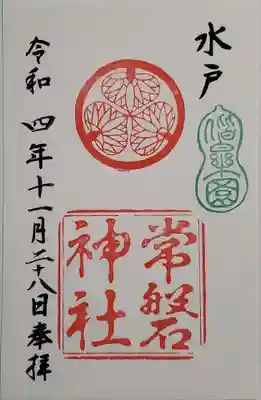 水戸
偕楽園
常磐
神社
令和四年十一月二十八日奉拝